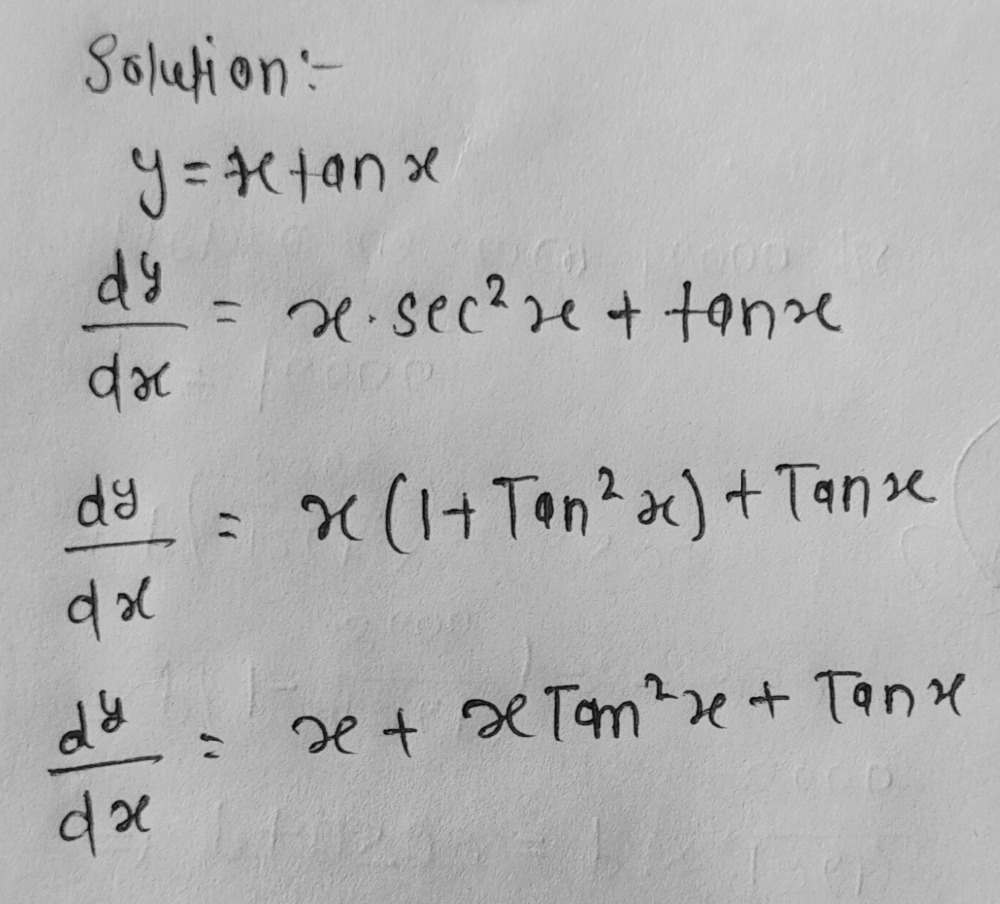 Solution:-
y = x tan x
dy/dx = x. sec² x + tan x
dy/dx = x (1 + Tan² x) + Tan x
dy/dx = x + x Tan² x + Tan x